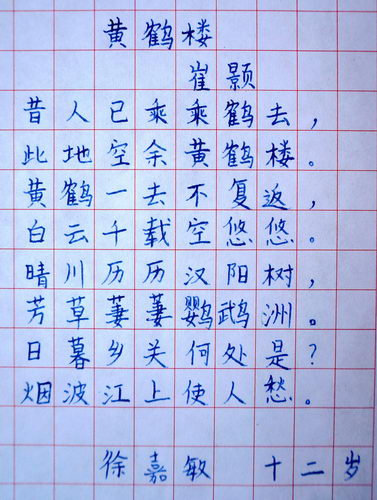 黄鹤楼
崔颢
昔人已乘乘鹤去，
此地空余黄鹤楼。
黄鹤一去不复返，
白云千载空悠悠。
晴川历历汉阳树，
芳草萋萋鹦鹉洲。
日暮乡关何处是？
烟波江上使人愁。
徐嘉敏 十二岁